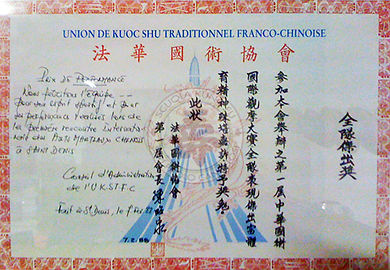 UNION DE KUOC SHU TRADITIONNEL FRANCO-CHINOISE
法華國術協會
PRIX DE PERFORMANCE
Nous félicitons l'équipe --
pour son esprit sportif et pour
les performances réalisées lors de
la première rencontre internatio-
nale des Arts Martiaux Chinois
à Saint Denis
Conseil d'Administration
de l'U.K.S.T.F.C.
Fait à St Denis, le 7 Fév
7.2.88
全隊傑出獎
參加本會舉辦之第一屆中華國術
國際觀摩大賽全隊表現傑出富體
育精神殊堪嘉許特予獎勉
此狀
法華國術協會
第一屆會長